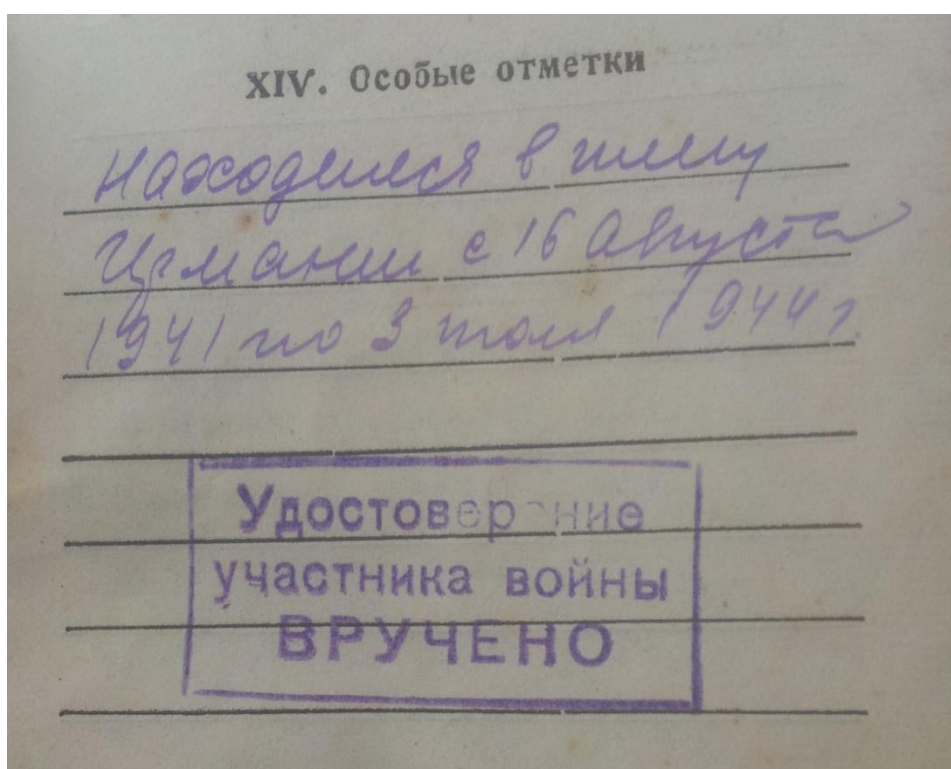 XIV. Особые отметки
Находился в плену
Германии с 16 Августа
1941 по 3 июля 1944 г.
Удостоверение
участника войны
ВРУЧЕНО